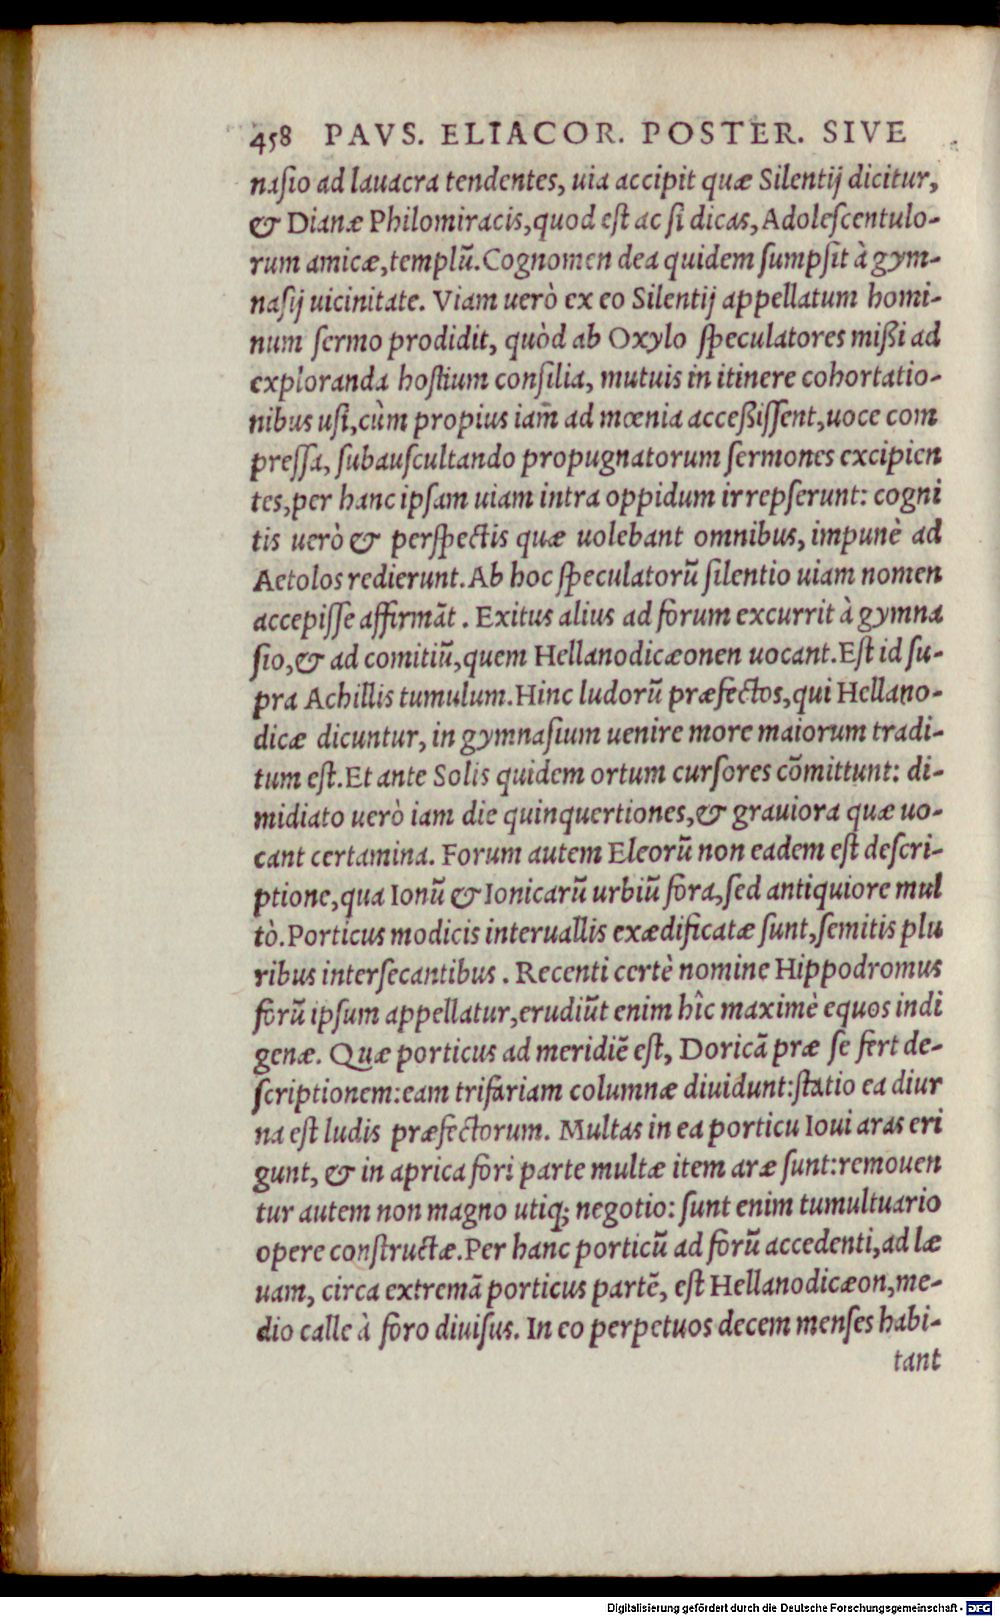 458 PAVS. ELIACOR. POSTER. SIVE
nasio ad lauacra tendentes, uia accipit quæ Silentij dicitur,
& Dianæ Philomiracis, quod est ac si dicas, Adolescentulo-
rum amicæ, templũ. Cognomen dea quidem sumpsit à gym-
nasij uicinitate. Viam uerò ex eo Silentij appellatum homi-
num sermo prodidit, quòd ab Oxylo speculatores mißi ad
exploranda hostium consilia, mutuis in itinere cohortatio-
nibus usi, cùm propius iam̃ ad mœnia acceßissent, uoce com
pressa, subauscultando propugnatorum sermones excipien
tes, per hanc ipsam uiam intra oppidum irrepserunt: cogni
tis uerò & perspectis quæ uolebant omnibus, impunè ad
Aetolos redierunt. Ab hoc speculatorũ silentio uiam nomen
accepisse affirmãt. Exitus alius ad forum excurrit à gymna
sio, & ad comitiũ, quem Hellanodicæonen uocant. Est id su-
pra Achillis tumulum. Hinc ludorũ præfectos, qui Hellano-
dicæ dicuntur, in gymnasium uenire more maiorum tradi-
tum est. Et ante Solis quidem ortum cursores cõmittunt: di-
midiato uerò iam die quinquertiones, & grauiora quæ uo-
cant certamina. Forum autem Eleorũ non eadem est descri-
ptione, qua Ionũ & Ionicarũ urbiũ fora, sed antiquiore mul
tò. Porticus modicis interuallis exædificatæ sunt, semitis plu
ribus intersecantibus. Recenti certè nomine Hippodromus
forũ ipsum appellatur, erudiũt enim hîc maximè equos indi
genæ. Quæ porticus ad meridiẽ est, Doricã præ se fert de-
scriptionem: eam trifariam columnæ diuidunt: statio ea diur
na est ludis præfectorum. Multas in ea porticu Ioui aras eri
gunt, & in aprica fori parte multæ item aræ sunt: remouen
tur autem non magno utiq; negotio: sunt enim tumultuario
opere constructæ. Per hanc porticũ ad forũ accedenti, ad læ
uam, circa extremã porticus partẽ, est Hellanodicæon, me-
dio calle à foro diuisus. In eo perpetuos decem menses habi-
tant
Digitalisierung gefördert durch die Deutsche Forschungsgemeinschaft - DFG